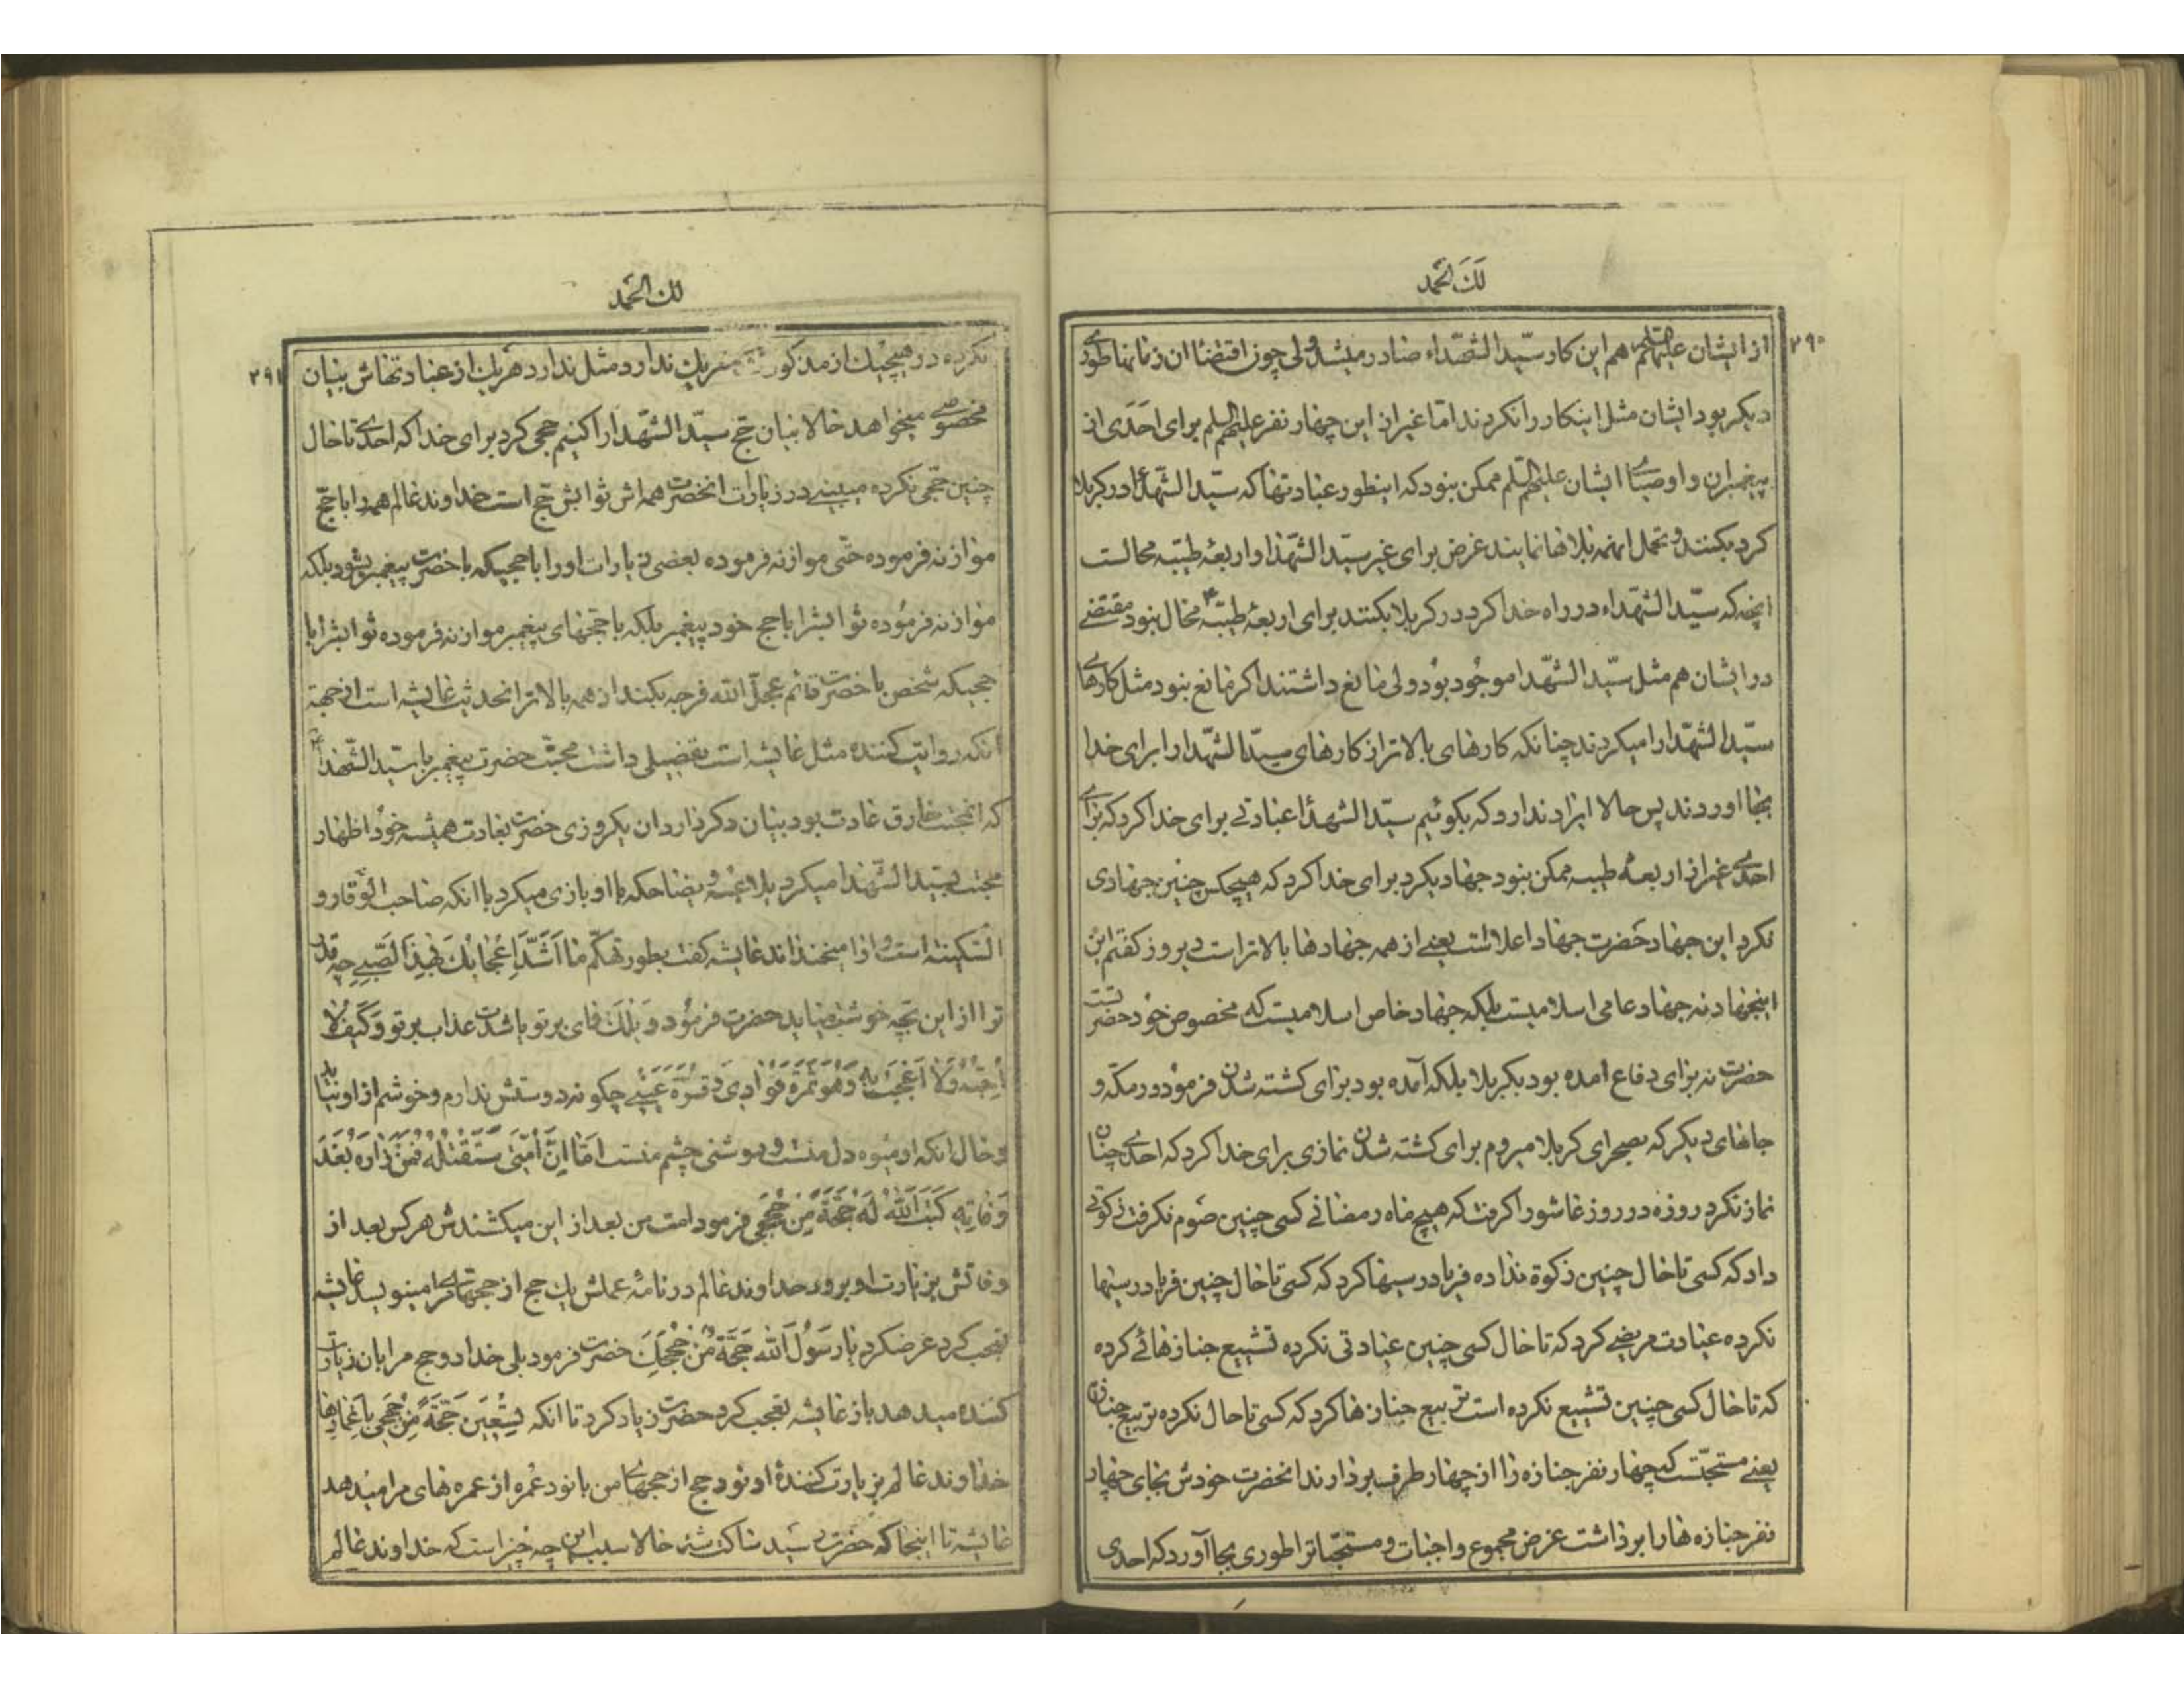 لَكَ الحَمد
٢٩٠
از ایشان علیهم السلم هم این کار سیّد الشهداء صادر میشد ولی چون اقتضاا ان زمانها طوری
دیکر بود ایشان مثل اینکار را نکردند امّا غیر از این چهار نفر علیهم السلم برای اَحَدی از
پیغمبران و اوصیای ایشان علیهم السلم ممکن نبود که اینطور عبادتها که سیّد الشهدا در کربلا
کرد بکنند و تحمل اینهمه بلاها نمایند غرض برای غیر سیّد الشهدا و اربعهٔ طیّبه محالست
انچه که سیّد الشهداء در راه خدا کرد در کربلا بکنند برای اربعهٔ طیّبه محال نبود مقتضی
در ایشان هم مثل سیّد الشهدا موجُود بوُد ولی مانع داشتند اکر مانع نبود مثل کارهای
سیّد الشهدا را میکردند چنانکه کارهای بالاتر از کارهای سیّد الشهدا را برای خدا
بجا اوردند پس حالا ایراد ندارد که بکوئیم سیّد الشهدا عبادتی برای خدا کرد که برای
احدی غیر از اربعهٔ طیبه ممکن نبود جهاد یکرد برای خدا کرد که هیچکس چنین جهادی
نکرد این جهاد حَضرت جهاد اعلاست یعنی از همه جهادها بالاتر است دیروز کفتم این
اینجهاد نه جهاد عامی اسلامیست بلکه جهاد خاص اسلامیست که مخصوص خوُد حضرتست
حضرت نه برای دفاع امده بود بکربلا بلکه آمده بود برای کشته شدن فرموُد در مکّه و
جاهای دیکر که بصحرای کربلا میروم برای کشته شدن نمازی برای خدا کرد که احدی چنان
نماز نکرد روزه در روز عاشورا کرفت که هیچ ماه رمضانی کسی چنین صَوم نکرفت زکوتی
داد که کسی تا حال چنین زکوة نداده فریاد رسیها کرد که کسی تا حال چنین فریاد رسیها
نکرده عیادت مریضی کرد که تا حال کسی چنین عیادتی نکرده تشییع جنازهائی کرده
که تا حال کسی چنین تشییع نکرده است تربیع جنازها کرد که کسی تا حال نکرده تربیع جنازه
یعنی مستحبّست که چهار نفر جنازه را از چهار طرف بردارند انحضرت خودش بجای چهار
نفر جنازه ها را برداشت غرض مجموع واجبات و مستحبّاترا طوری بجا آورد که احدی
لك الحَمد
٢٩١
نکرده در هیچیك از مذکور شریك ندارد مثل ندارد هریك از عبادتهاش بیان
مخصوصی میخواهد حالا بیان حج سیّد الشهدا را کنیم حجی کرد برای خدا که احدی تا حال
چنین حجّی نکرده میبینی در زیارات انحضرت همه اش ثوابش حج است خداوند عالم همه را با حجّ
موازنه فرموده حتّی موازنه فرموده بعضی زیارات او را با حجیکه با حضرت پیغمبر بشود بلکه
موازنه فرموُده ثوابشرا با حج خود پیغمبر بلکه با حجهای پیغمبر موازنه فرموده ثوابشرا با
حجیکه شخص با حضرت قائم عجلّ الله فرجه بکند از همه بالاتر انحدیث عایشه است از جهة
انکه روایت کننده مثل عایشه است تفصیلی داشت محبّت حضرت پیغمبر با سیّد الشهدا
که انمحبّت خارق عادت بود بیان دکر دارد ان یکروزی حضرت بعادت همیشه خوُد اظهار
محبّت بسیّد الشهدا میکرد بلاعبه و یضاحکه با او بازی میکرد با انکه صاحب الوقار و
السّکینه است او را میخنداند عایشه کفت بطور تهکّم ما اَشَدَّ اِعْجابُكَ بِهٰذَا الصَّبِی چه قدر
ترا از این بچّه خوش میاید حضرت فرموُد وَیْلَكَ وای بر تو باشدت عذاب بر تو وَ كَیْفَ لا
اُحِبُّهُ وَ لا اُعْجِبُ بِهِ وَ هُوَ ثَمَرَةُ فُؤادی وَ قُرَّةُ عَیْنی چکونه دوستش ندارم و خوشم از او نیاید
و حال انکه او میوه دل منست و روشنی چشم منست امّا اِنَّ اُمَّتی سَتَقْتُلُهُ فَمَنْ زارَهُ بَعْدَ
وَفاتِهِ كَتَبَ اللهُ لَهُ حَجَّةً مِنْ حُجَجی فرمود امت من بعد از این میکشندش هر کس بعد از
وفاتش بزیارت او برود خداوند عالم در نامهٔ عملش یك حج از حجهای مرا مینویسد عایشه
تعجب کرد عرضکرد یا رَسُولَ الله حَجَّةً مِنْ حُجَجِكَ حضرت فرمود بلی خدا دو حج مرا بان زیارت
کننده میدهد باز عایشه تعجب کرد حضرت زیاد کرد تا انکه تِسْعینَ حَجَّةً مِنْ حُجَجی بِاَعْمارِها
خداوند عالم بزیارت کنندهٔ او نود حج از حجهای من با نود عُمره از عمره های مرا میدهد
عایشه تا اینجا که حضرت رسید ساکت شد حالا سبب این چه چیز است که خداوند عالم